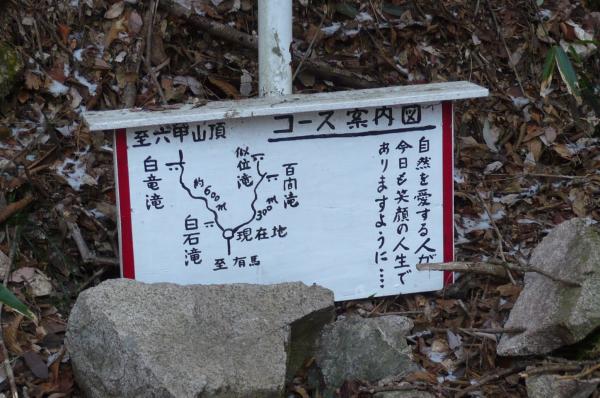 コース案内図
至六甲山頂
白竜滝
約600m
白石滝
似位滝
百間滝
300m
現在地
至有馬
自然を愛する人が
今日も笑顔の人生で
ありますように……